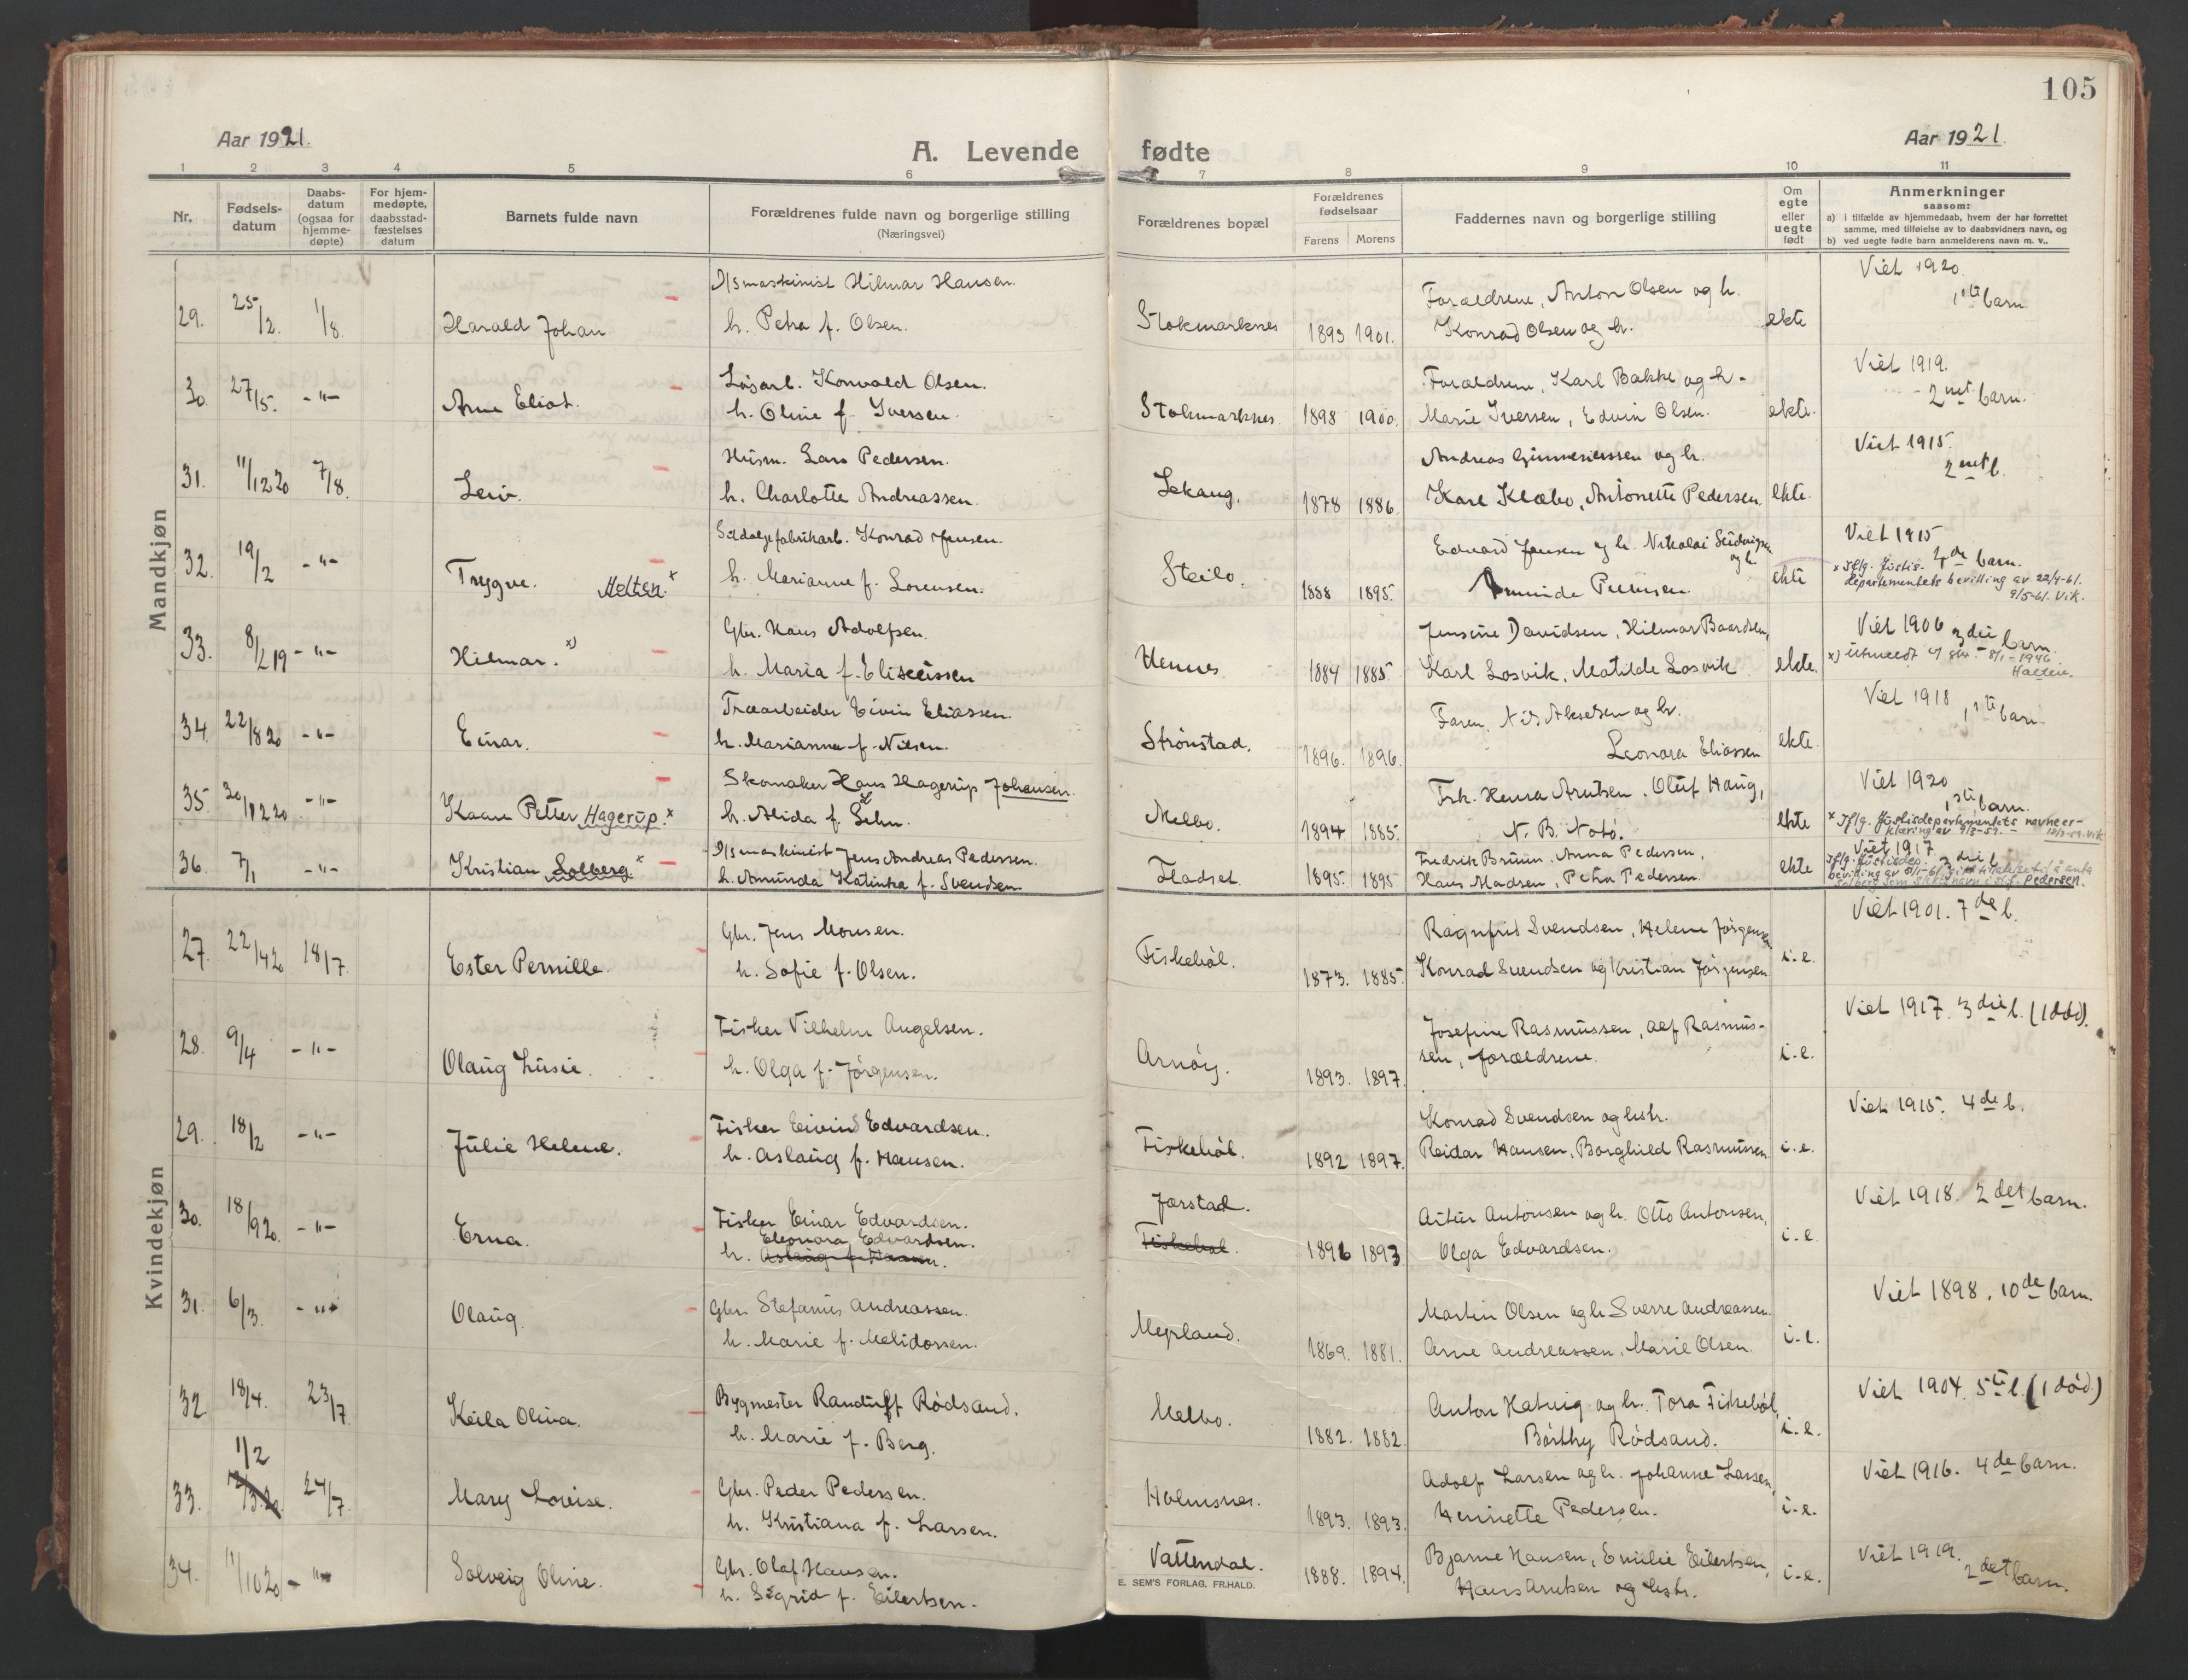 105
Aar 1921.
A. Levende fødte
Aar 1921.
1 2 3 4 5 6 7 8 9 10 11
Nr.
Fødsels-datum
Daabs-datum (ogsaa for hjemme-døpte)
For hjem-medøpte, daabsstad-fæstelses datum
Barnets fulde navn
Forældrenes fulde navn og borgerlige stilling
(Næringsvei)
Forældrenes bopæl
Forældrenes fødselsaar
Farens Morens
Faddernes navn og borgerlige stilling
Om egte eller uegte født
Anmerkninger
saasom:
a) i tilfælde av hjemmedaab, hvem der har forrettet
samme, med tilføielse av to daabsvidners navn, og
b) ved uegte fødte barn anmelderens navn m. v..
Mandkjøn
D/smaskinist Hilmar Hansen. Forældrene, Anton Olsen og h. Viet 1920.
29. 25/2. 1/8. Harald Johan h. Petra f. Olsen. Stokmarknes 1893 1901. Konrad Olsen og h. ekte 1ste barn
Løsarb. Konvald Olsen. Forældrene, Karl Bakke og h. Viet 1919.
30. 27/5. -"- Arne Eliot. h. Oline f. Iversen. Stokmarknes 1898 1900. Marie Iversen, Edvin Olsen. ekte. 2net barn.
Husm. Lars Pedersen. Andreas og h. Viet 1915.
31. 11/12 20 7/8. Leiv. h. Charlotte Andreassen. Lekang. 1878 1886. Karl Klæbo, Antonette Pedersen. ekte. 2net b.
Sildoljefabrikarb. Konrad Jensen. Edvard Jensen og h. Nikolai og h. Viet 1915
32. 19/2 -"- Trygve. Holten.x h. Marianne f. Lorensen. Steilo. 1888 1895. ekte 4de barn.
x Iflg. Justis-departementets bevilling av 22/4-61. 9/5-61. Vik.
Gbr. Hans Adolfsen. Jensine Davidsen, Hilmar Baardsen, Viet 1906
33. 8/2 19 -"- Hilmar. x) h. Maria f. Eliseussen Hennes 1884 1885 Karl Losvik, Matilde Losvik ekte. 3die barn.
x) Utmeldt 8/1-1946
Træarbeider Eivin Eliassen. Faren, Nils Akselsen og h. Viet 1918
34. 22/8 20 -"- Einar. h. Marianne f. Nilsen. Strønstad. 1896. 1896. Leonora Eliassen ekte. 1ste barn.
Skomaker Hans Hagerup Johansen. Frk. Henra Arntsen, Oluf Haug, Viet 1920
35. 30/12 20 -"- Kaare Petter Hagerup.x h. Alida f. Melbo. 1894 1885. N. B. Notø. ekte 1ste barn.
x Iflg. Justisdepartementets navneerklæring av
D/smaskinist Jens Andreas Pedersen. Fredrik Bruun, Anna Pedersen, Viet 1917
36. 7/1 -"- Kristian Solberg x h. Amunda Katinka f. Svendsen Fladset 1895. 1895 Hans Madsen, Petra Pedersen ekte 3die b.
Iflg. Justisdep. bevilling av tillatelse til å anta Solberg som slektsnavn i st.f. Pedersen.
Kvindekjøn
Gbr. Jens Monsen. Ragnfrid Svendsen, Helene Jørgensen Viet 1901. 7de b.
27. 22/4 20 18/7. Ester Pernille. h. Sofie f. Olsen. Fiskebøl. 1873. 1885. Konrad Svendsen og Kristian Jørgensen i.e.
Fisker Vilhelm Angelsen. Josefine Rasmussen, Alf Rasmus- Viet 1917. 3die b. (1 død).
28. 9/4 -"- Olaug Lusie. h. Olga f. Jørgensen. Arnøy. 1893. 1897. sen, forældrene. i.e.
Fisker Eivind Edvardsen. Konrad Svendsen og hstr. Viet 1915. 4de b.
29. 18/2 -"- Julie Helene. h. Aslaug f. Hansen. Fiskebøl. 1892 1897. Reidar Hansen, Borghild Rasmussen i.e.
Fisker Einar Edvardsen. Jørstad. Artur Antonsen og h. Otto Antonsen, Viet 1918. 2det barn.
30. 18/9 20. -"- Erna. Eleonora Edvardsen. h. Aslaug f. Hansen. Fiskebøl. 1896 1893 Olga Edvardsen. i.e.
Gbr. Stefanus Andreassen. Martin Olsen og h. Sverre Andreassen. Viet 1898. 10de barn.
31. 6/3. -"- Olaug. h. Marie f. Melidorsen. Meyland. 1869. 1881. Arne Andreassen, Marie Olsen. i.e.
Bygmester Randulf Rødsand. Anton Hatvig og h. Tora Fiskebøl, Viet 1904. 5te b. (1 død.)
32. 18/4. 23/7 Keila Oliva. h. Marie f. Berg. Melbo. 1882. 1882. Borthy Rødsand. i.e.
1/2 Gbr. Peder Pedersen. Adolf Larsen og h. Johanne Larsen, Viet 1916. 4de barn.
33. 24/7. Mary Lovise. h. Kristiana f. Larsen. Holmsnes. 1893. 1893. Henriette Pedersen. i.e.
Gbr. Olaf Hansen. Bjarne Hansen, Emilie Eilertsen, Viet 1919.
34. 11/10 20 -"- Solveig Oline. h. Sigrid f. Eilertsen. Vattendal. 1888. 1894. Hans Arntsen og hstr. i.e. 2det barn.
E. SEM'S FORLAG. FR.HALD.